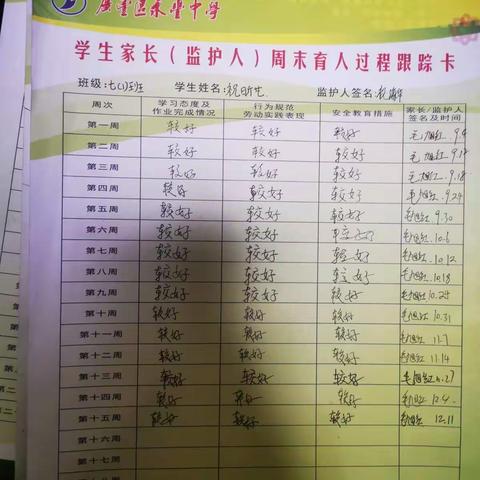 广丰区永丰中学
学生家长（监护人）周末育人过程跟踪卡
班级:七(1)班 学生姓名: 监护人签名:
周次 学习态度及作业完成情况 行为规范劳动实践表现 安全教育措施 家长/监护人签名及时间
第一周 较好 较好 较好 9.9
第二周 较好 较好 较好
第三周 较好 较好 较好 9.18
第四周 较好 较好 较好 9.24
第五周 较好 较好 较好 9.30
第六周 较好 较好 较好 10.6
第七周 较好 较好 较好 10.12
第八周 较好 较好 较好 10.18
第九周 较好 较好 较好 10.24
第十周 较好 较好 较好 10.31
第十一周 较好 较好 较好 11.7
第十二周 较好 较好 较好 11.14
第十三周 较好 较好 较好
第十四周 较好 较好 较好 12.4
第十五周 较好 较好 较好 12.11
第十六周
第十七周